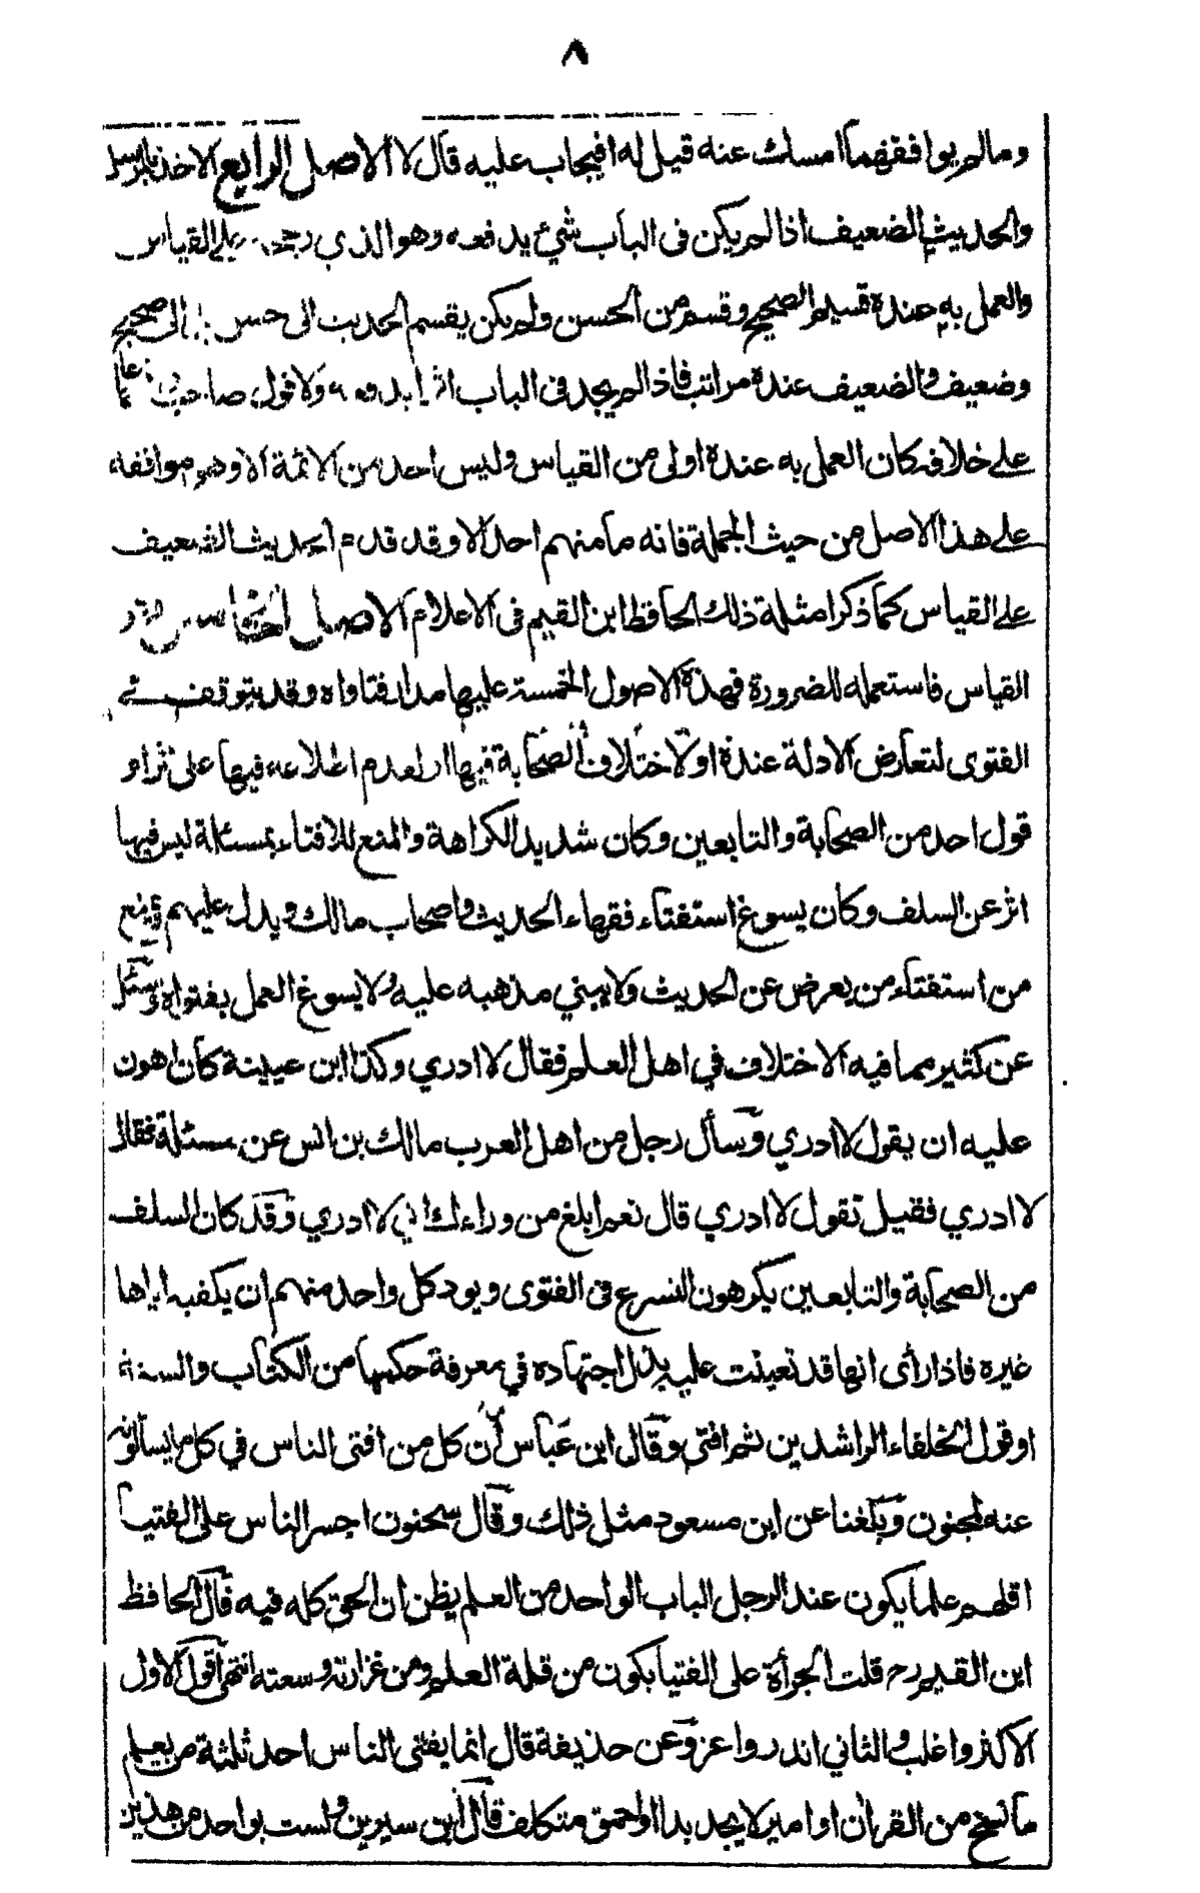 ٨
وما لم يوافقهما امسك عنه قيل له افيجاب عليه قال لا الاصل الرابع الاخذ بالمرسل
والحديث الضعيف اذا لم يكن فى الباب شئ يدفعه وهو الذي رجحه على القياس
والعمل به عنده قسيم الصحيح وقسم من الحسن ولم يكن يقسم الحديث الى حسن الى صحيح
وضعيف والضعيف عنده مراتب فاذا لم يجد فى الباب اثرا يدفعه ولا قول صاحب
على خلافه كان العمل به عنده اولى من القياس وليس احد من الائمة الا وهو موافقه
على هذا الاصل من حيث الجملة فانه ما منهم احد الا وقد قدم الحديث الضعيف
على القياس كما ذكر امثلة ذلك الحافظ ابن القيم فى الاعلام الاصل الخامس
القياس فاستعمله للضرورة فهذه الاصول الخمسة عليها مدار فتاواه وقد يتوقف في
الفتوى لتعارض الادلة عنده او لاختلاف الصحابة فيها او لعدم اطلاعه فيها على اثر او
قول احد من الصحابة والتابعين وكان شديد الكراهة والمنع للافتاء بمسئلة ليس فيها
اثر عن السلف وكان يسوغ استفتاء فقهاء الحديث واصحاب مالك ويدل عليهم ويمنع
من استفتاء من يعرض عن الحديث ولا يبني مذهبه عليه ولا يسوغ العمل بفتواه وسئل
عن كثير مما فيه الاختلاف في اهل العلم فقال لا ادري وكذا ابن عيينة كان اهون
عليه ان يقول لا ادري وسأل رجل من اهل العرب مالك بن انس عن مسئلة فقال
لا ادري فقيل تقول لا ادري قال نعم ابلغ من وراءك اني لا ادري وقد كان السلف
من الصحابة والتابعين يكرهون التسرع فى الفتوى ويود كل واحد منهم ان يكفيه اياها
غيره فاذا رأى انها قد تعينت عليه بذل اجتهاده في معرفة حكمها من الكتاب والسنة
او قول الخلفاء الراشدين ثم افتى وقال ابن عباس ان كل من افتى الناس في كل ما يسألونه
عنه لمجنون وبلغنا عن ابن مسعود مثل ذلك وقال سحنون اجسر الناس على الفتيا
اقلهم علما يكون عند الرجل الباب الواحد من العلم يظن ان الحق كله فيه قال الحافظ
ابن القيم رح قلت الجرأة على الفتيا يكون من قلة العلم ومن غزارته وسعته انتهى اقول الاول
الاكثر واغلب والثاني اندر واعز وعن حذيفة قال انما يفتى الناس احد ثلثة من يعلم
ما نسخ من القران او امير لا يجد بدا او احمق متكلف قال ابن سيرين ولست بواحد من هذين